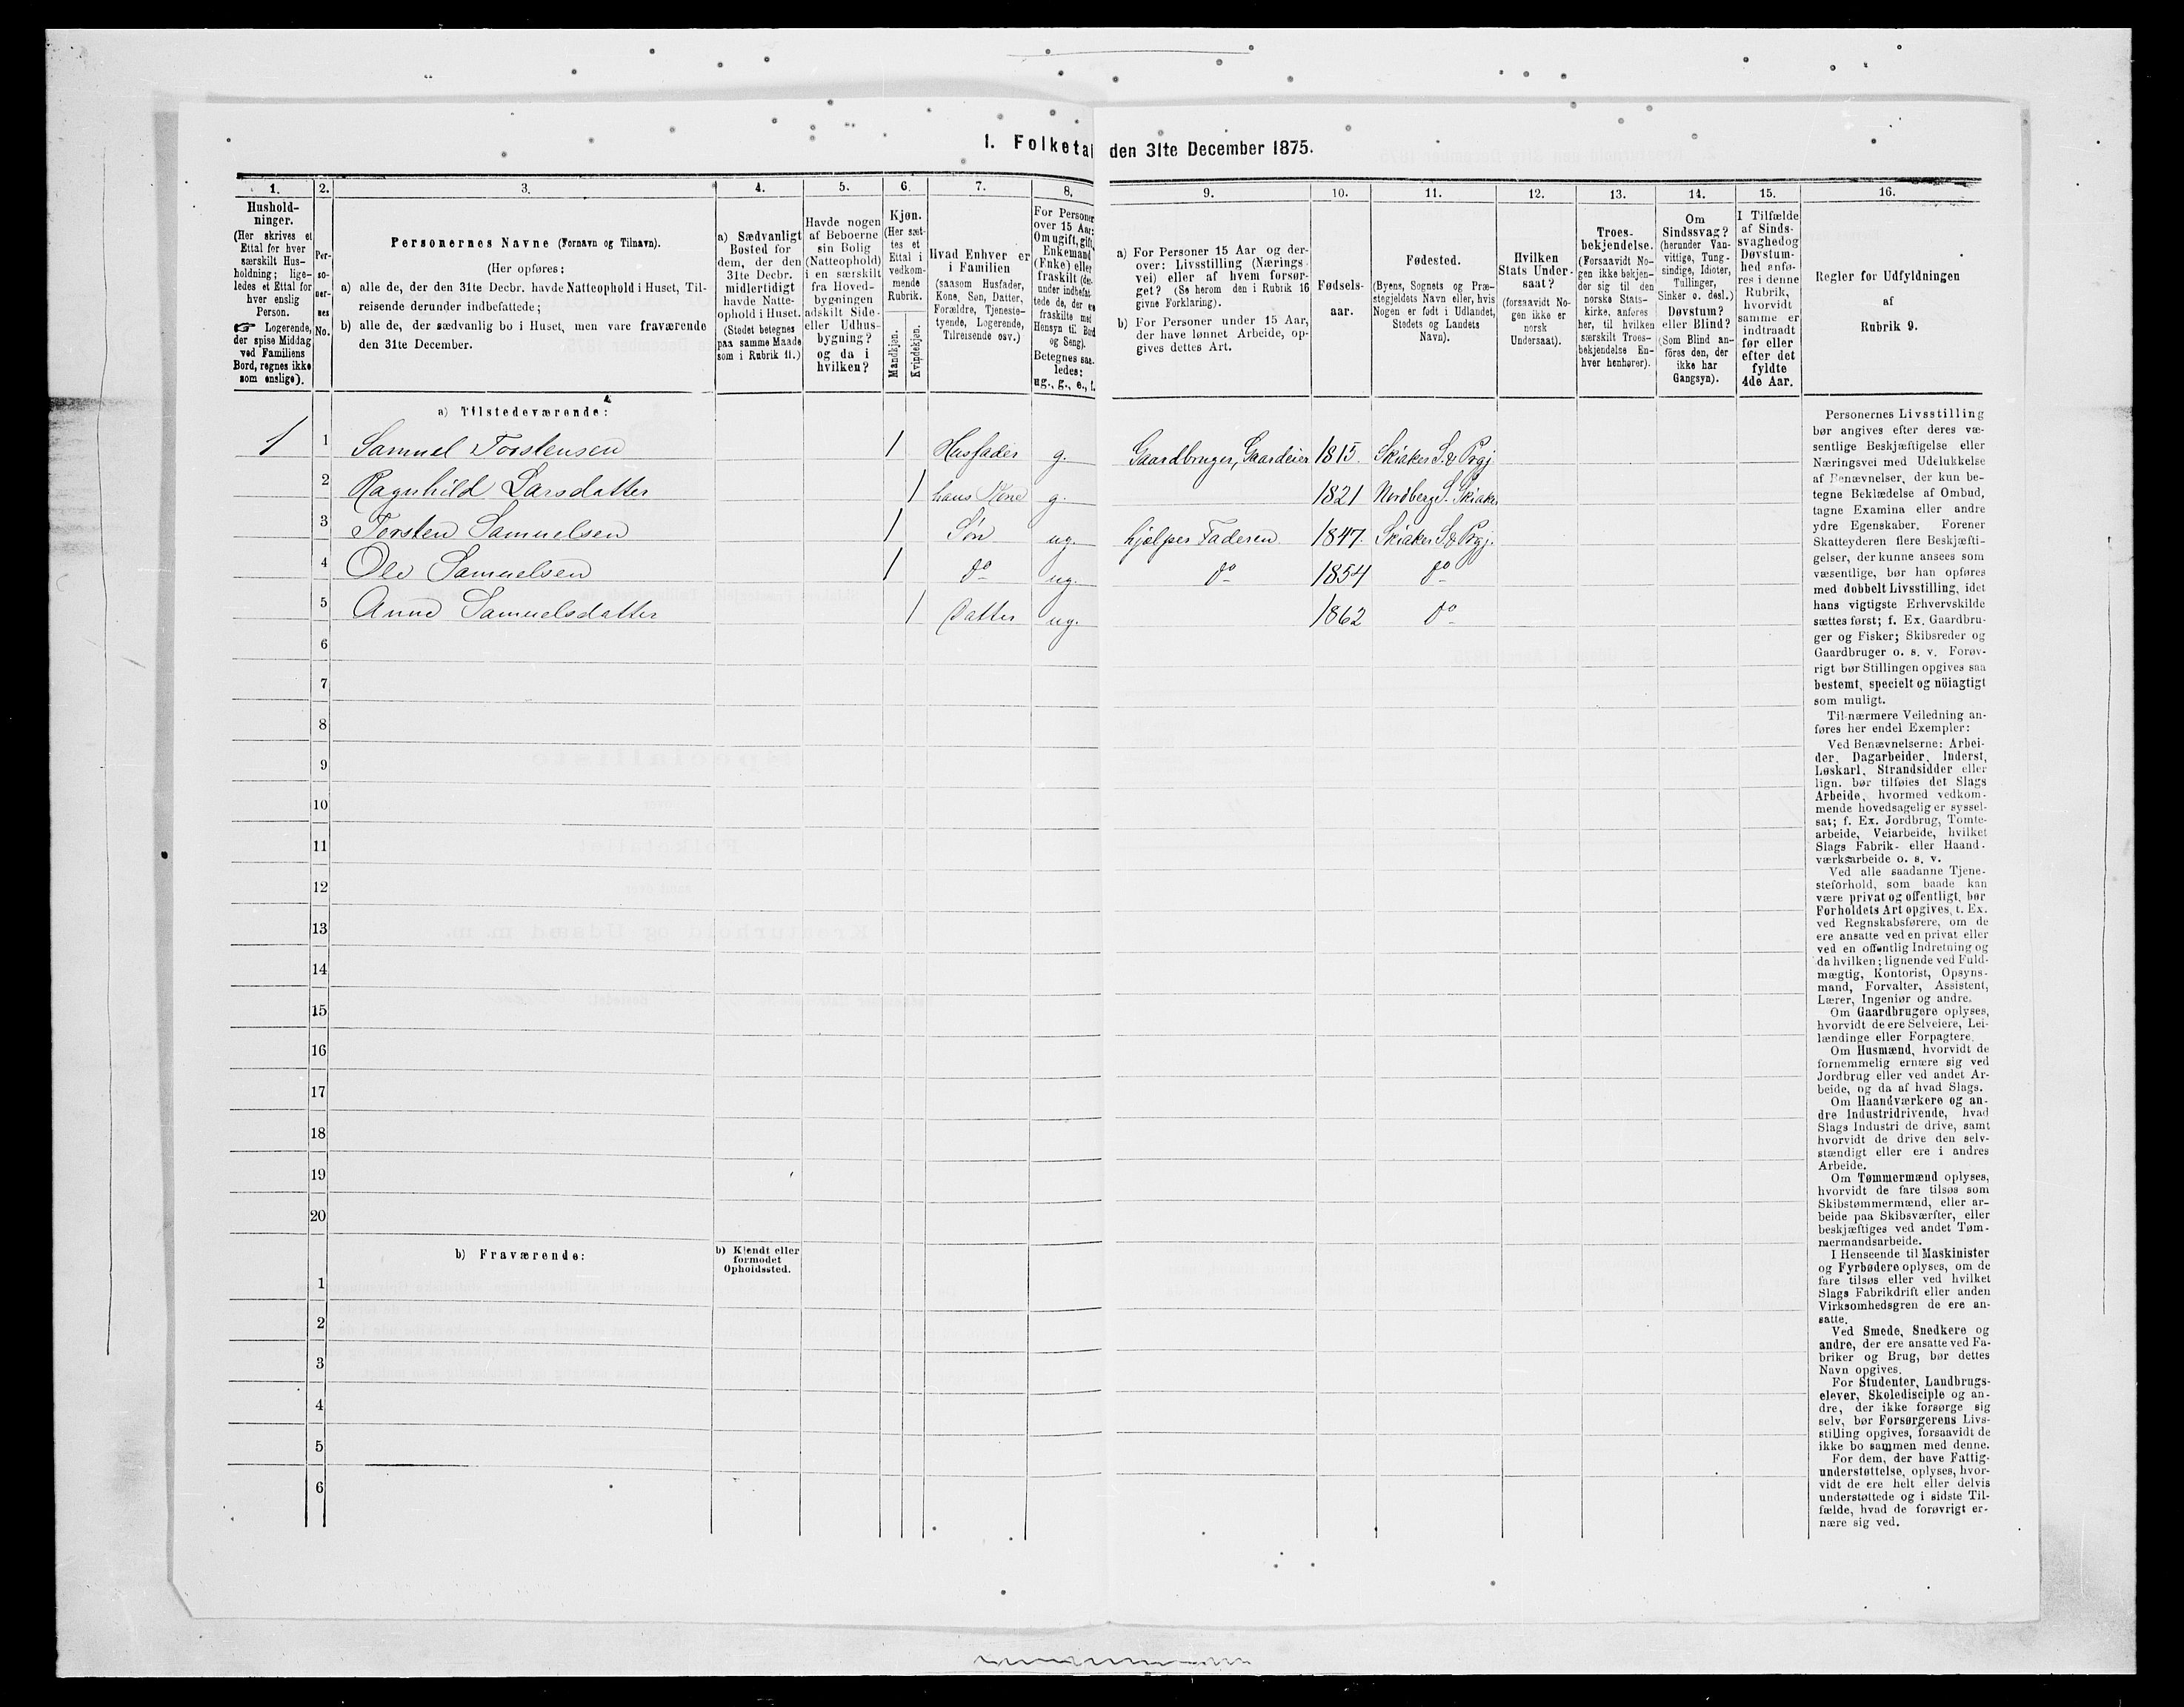 I. Folketal den 31te December 1875.
1. 2. 3. 4. 5. 6. 7. 8. 9. 10. 11. 12. 13. 14. 15. 16.
Hushold-
ninger.
(Her skrives et
Ettal for hver
særskilt Hus-
holdning; lige-
ledes et Ettal for
hver enslig
Person.
☞ Logerende,
der spise Middag
ved Familiens
Bord, regnes ikke
som enslige).
Per-
so-
ner-
nes
No.
Personernes Navne (Fornavn og Tilnavn).
(Her opføres:
a) alle de, der den 31te Decbr. havde Natteophold i Huset, Til-
reisende derunder indbefattede;
b) alle de, der sædvanlig bo i Huset, men vare fraværende
den 31te December.
a) Sædvanligt
Bosted for
dem, der den
31te Decbr.
midlertidigt
havde Natte-
ophold i Huset.
(Stedet betegnes
paa samme Maade
som i Rubrik 11.)
Havde nogen
af Beboerne
sin Bolig
(Natteophold)
i en særskilt
fra Hoved-
bygningen
adskilt Side-
eller Udhus-
bygning?
og da i
hvilken?
Kjøn.
(Her sæt-
tes et
Ettal i
vedkom-
mende
Rubrik.
Mandkjøn.
Kvindekjøn.
Hvad Enhver er
i Familien
(saasom Husfader,
Kone, Søn, Datter,
Forældre, Tjeneste-
tyende, Logerende,
Tilreisende osv.)
For Personer
over 15 Aar:
Om ugift, gift,
Enkemand
(Enke) eller
fraskilt (der-
under indbefat-
tede de, der ere
fraskilte med
Hensyn til Bord
og Seng).
Betegnes saa-
ledes:
ug., g., e., f.
a) For Personer 15 Aar og der-
over: Livsstilling (Nærings-
vei) eller af hvem forsør-
get? (Se herom den i Rubrik 16
givne Forklaring).
b) For Personer under 15 Aar,
der have lønnet Arbeide, op-
gives dettes Art.
Fødsels-
aar.
Fødested.
(Byens, Sognets og Præ-
stegjeldets Navn eller, hvis
Nogen er født i Udlandet,
Stedets og Landets
Navn).
Hvilken
Stats Under-
saat?
(forsaavidt No-
gen ikke er
norsk
Undersaat).
Troes-
bekjendelse.
(Forsaavidt No-
gen ikke bekjen-
der sig til den
norske Stats-
kirke, anføres
her, til hvilken
særskilt Troes-
bekjendelse En-
hver henhører).
Om
Sindssvag?
(herunder Van-
vittige, Tung-
sindige, Idioter,
Tullinger,
Sinker o. desl.)
Døvstum?
eller Blind?
(Som Blind an-
føres den, der
ikke har
Gangsyn).
I Tilfælde
af Sinds-
svaghed og
Døvstum-
hed anfø-
res i denne
Rubrik,
hvorvidt
samme er
indtraadt
før eller
efter det
fyldte
4de Aar.
Regler for Udfyldningen
af
Rubrik 9.
a) Tilstedeværende:
1 1 Samuel Torstensen 1 Husfader g. Gaardbruger, Gaardeier 1815 Skiaker S. & Prgj.
2 Ragnhild Larsdatter 1 hans Kone g. 1821 Nordberg S. Skiaker
3 Torsten Samuelsen 1 Søn ug. hjælper Faderen 1847. Skiaker S. & Prgj.
4 Ole Samuelsen 1 do ug. do 1854 do
5 Anne Samuelsdatter 1 Datter ug. 1862 do
6
7
8
9
10
11
12
13
14
15
16
17
18
19
20
b) Fraværende:
b) Kjendt eller
formodet
Opholdssted.
1
2
3
4
5
6
Personernes Livsstilling
bør angives efter deres væ-
sentlige Beskjæftigelse eller
Næringsvei med Udelukkelse
af Benævnelser, der kun be-
tegne Beklædelse af Ombud,
tagne Examina eller andre
ydre Egenskaber. Forener
Skatteyderen flere Beskjæfti-
gelser, der kunne ansees som
væsentlige, bør han opføres
med dobbelt Livsstilling, idet
hans vigtigste Erhvervskilde
sættes først; f. Ex. Gaardbru-
ger og Fisker; Skibsreder og
Gaardbruger o. s. v. Forøv-
rigt bør Stillingen opgives saa
bestemt, specielt og nöiagtigt
som muligt.
Til nærmere Veiledning an-
føres her endel Exempler:
Ved Benævnelserne: Arbei-
der, Dagarbeider, Inderst,
Løskarl, Strandsidder eller
lign. bør tilføies det Slags
Arbeide, hvormed vedkom-
mende hovedsagelig er syssel-
sat; f. Ex. Jordbrug, Tomte-
arbeide, Veiarbeide, hvilket
Slags Fabrik- eller Haand-
værksarbeide o. s. v.
Ved alle saadanne Tjene-
steforhold, som baade kan
være privat og offentligt, bør
Forholdets Art opgives, t. Ex.
ved Regnskabsførere, om de
ere ansatte ved en privat eller
ved en offentlig Indretning og
da hvilken; lignende ved Fuld-
mægtig, Kontorist, Opsyns-
mand, Forvalter, Assistent,
Lærer, Ingeniør og andre.
Om Gaardbrugere oplyses,
hvorvidt de ere Selveiere, Lei-
lændinge eller Forpagtere.
Om Husmænd, hvorvidt de
fornemmelig ernære sig ved
Jordbrug eller ved andet Ar-
beide, og da af hvad Slags.
Om Haandværkere og an-
dre Industridrivende, hvad
Slags Industri de drive, samt
hvorvidt de drive den selv-
stændigt eller ere i andres
Arbeide.
Om Tømmermænd oplyses,
hvorvidt de fare tilsøs som
Skibstømmermænd, eller ar-
beide paa Skibsværfter, eller
beskjæftiges ved andet Tøm-
mermandsarbeide.
I Henseende til Maskinister
og Fyrbødere oplyses, om de
fare tilsøs eller ved hvilket
Slags Fabrikdrift eller anden
Virksomhedsgren de ere an-
satte.
Ved Smede, Snedkere og
andre, der ere ansatte ved Fa-
briker og Brug, bør dettes
Navn opgives.
For Studenter, Landbrugs-
elever, Skoledisciple og an-
dre, der ikke forsørge sig
selv, bør Forsørgerens Livs-
stilling opgives, forsaavidt de
ikke bo sammen med denne.
For dem, der have Fattig-
understøttelse, oplyses, hvor-
vidt de ere helt eller delvis
understøttede og i sidste Til-
fælde, hvad de forøvrigt er-
nære sig ved.